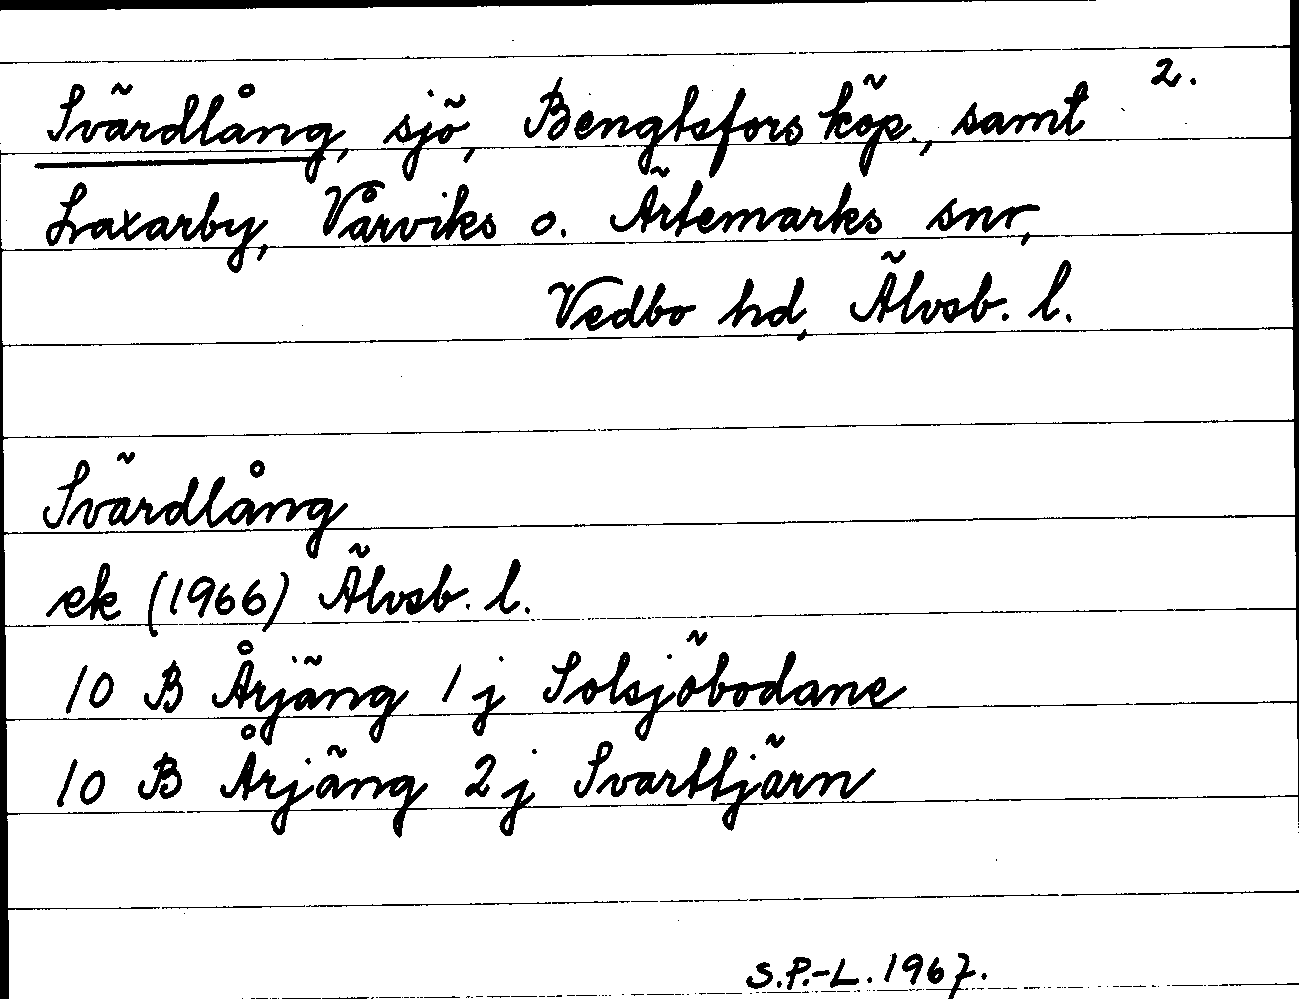 2.
Svärdlång, sjö, Bengtsfors köp., samt
Laxarby, Vårviks o. Ärtemarks snr,
Vedbo hd, Älvsb. l.
Svärdlång
ek (1966) Älvsb. l.
10 B Årjäng 1 j Solsjöbodane
10 B Årjäng 2 j Svarttjärn
S.P.-L. 1967.